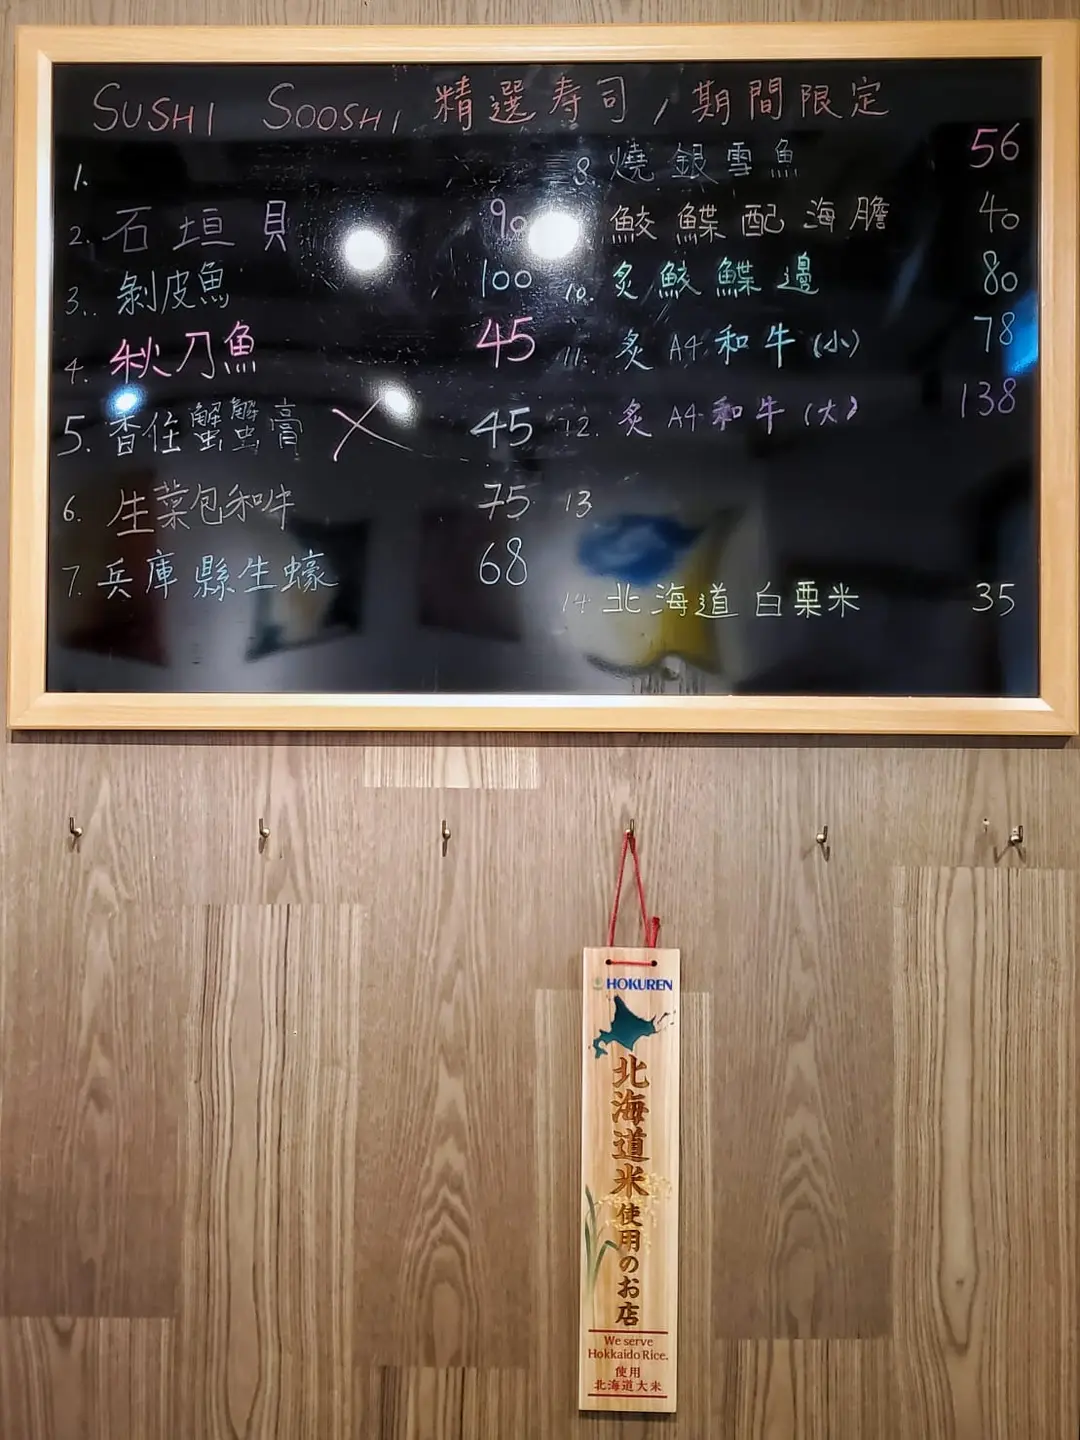 SUSHI SOOSHI 精選寿司，期間限定
1.
2. 石垣貝 90
3. 剝皮魚 100
4. 秋刀魚 45
5. 香住蟹蟹膏 X 45
6. 生菜包和牛 75
7. 兵庫縣生蠔 68
8. 燒銀雪魚 56
鮫鰈配海膽 40
10. 炙鮫鰈邊 80
11. 炙A4和牛(小) 78
12. 炙A4和牛(大) 138
13
14. 北海道白栗米 35
HOKUREN
北海道米使用のお店
We serve
Hokkaido Rice.
使用
北海道大米